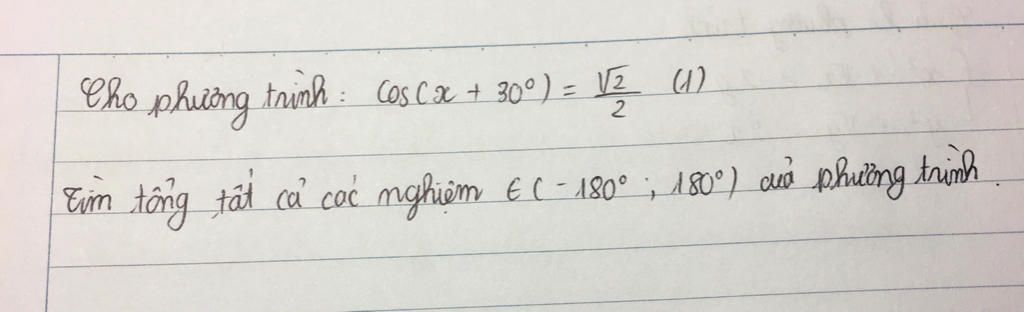 Cho phương trình: cos(x + 30°) = √2/2 (1)
Tìm tổng tất cả các nghiệm ∈ (-180° ; 180°) của phương trình.